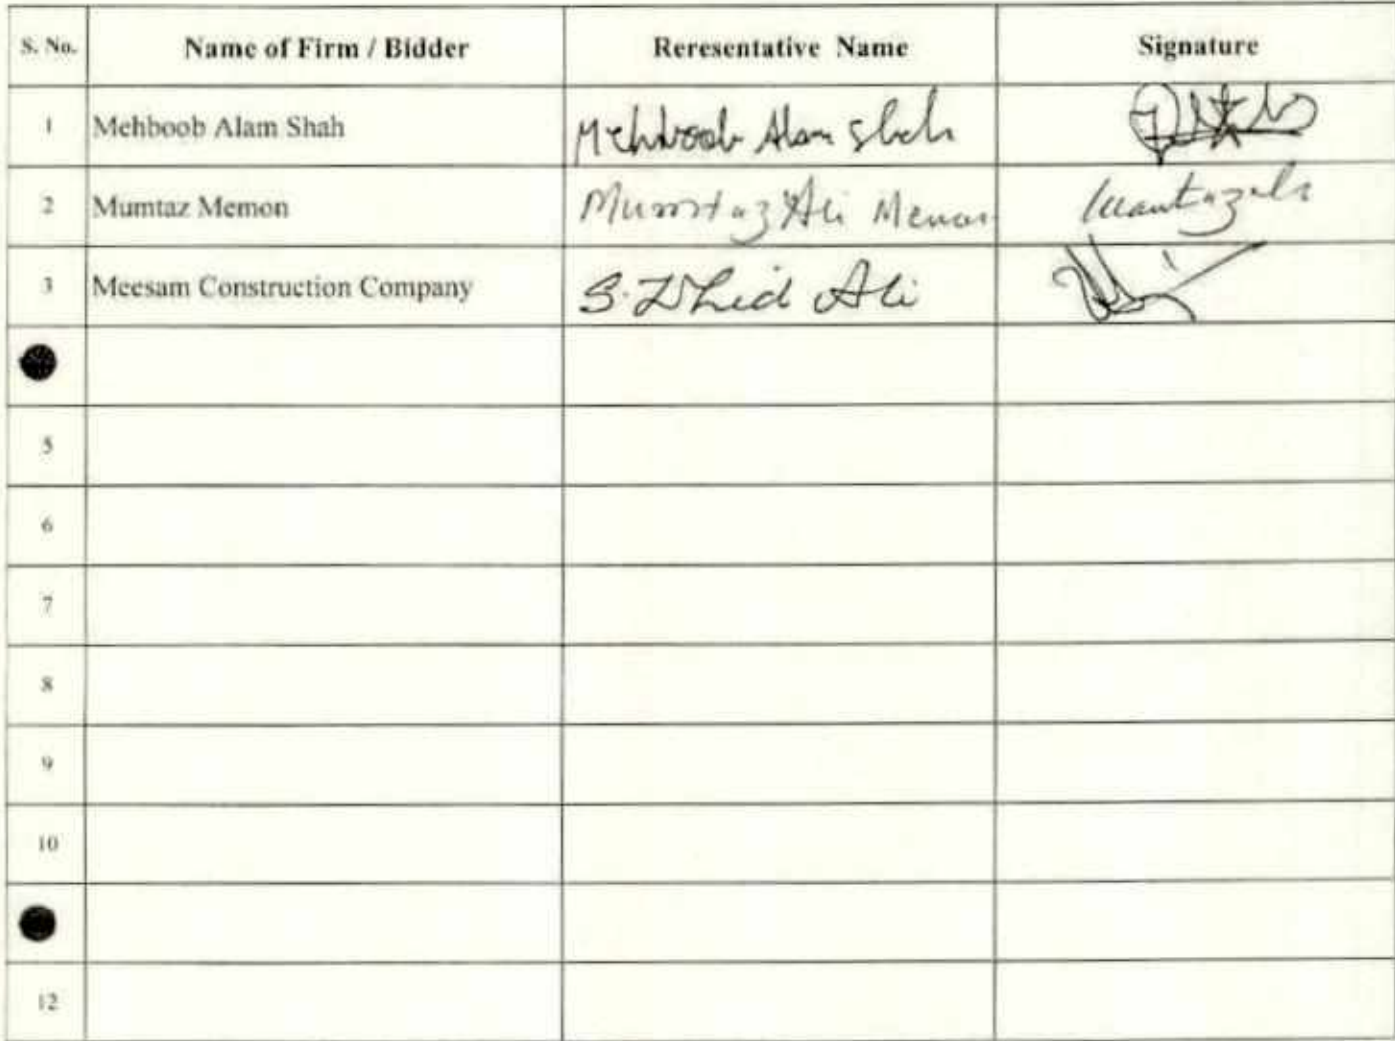 S. No. Name of Firm / Bidder Reresentative Name Signature
1 Mehboob Alam Shah Mehboob Alam Shah
2 Mumtaz Memon Mumtaz Ali Memon
3 Meesam Construction Company S. Ali
5
6
7
8
9
10
12